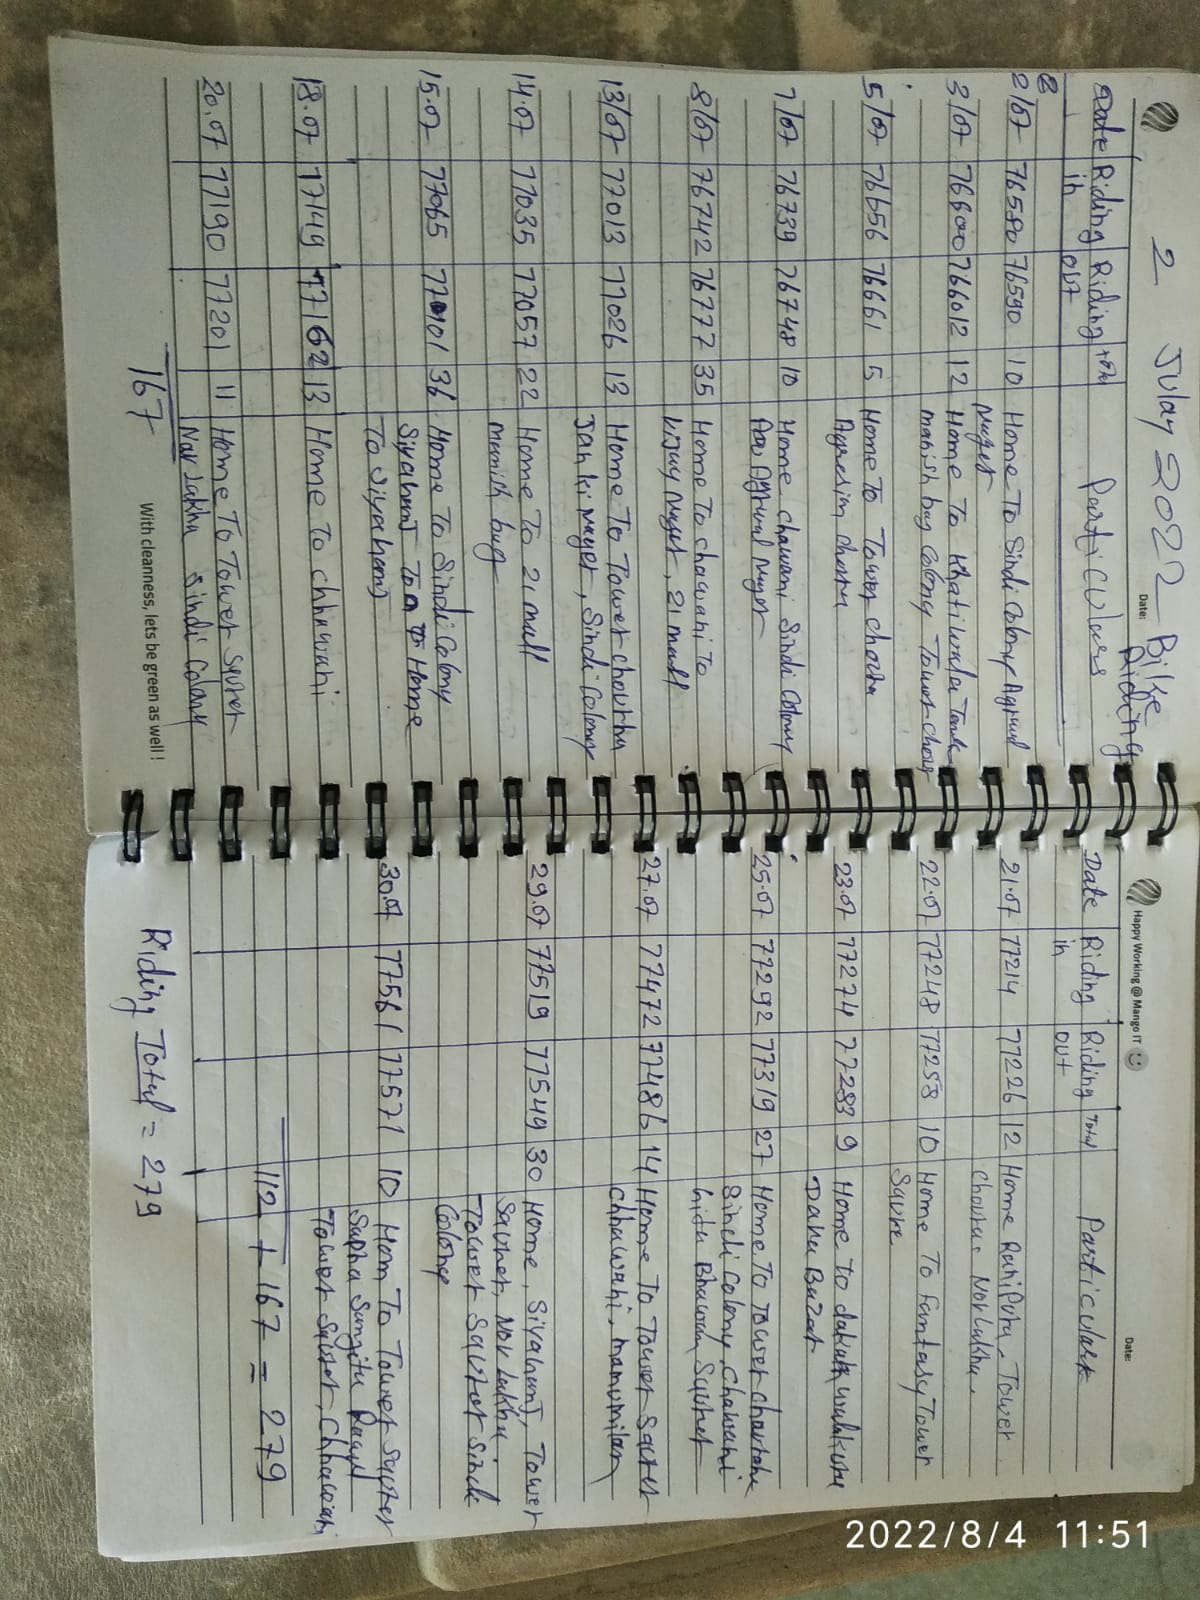 2 Julay 2022 - Bike Riding
Date:
Date Riding in Riding out total Particulars
2/07 76580 76590 10 Home To Sindi Colony Agrwal
Nager
3/07 76600 766012 12 Home To Khatiwala Tank
manish bag Colony Tower chourah
5/07 76656 76661 5 Home To Tower choraha
Agresin chora
7/07 76739 76748 10 Home chawani Sindi Colony
Agrwal Nager
8/07 76742 76777 35 Home To chawani To
Vijay Nager, 21 mall
13/07 77013 77026 13 Home To Tower chourha
Janki nager, Sindi Colony
14.07 77035 77057 22 Home To 21 mall
manish bag
15.07 77065 770101 36 Home To Sindi Colony
Siyahamj To Home
To Siyahamj
18.07 77149 77162 13 Home To chhawani
20.07 77190 77201 11 Home To Tower Squrer
Nav lakha Sindi Colony
167
With cleanness, lets be green as well !
Happy Working @ Mango IT
Date:
Date Riding in Riding out Total Particulars
21.07 77214 77226 12 Home RaniPura, Tower
Chourha Navlakha,
22.07 77248 77258 10 Home To Fantasy Tower
Squre
23.07 77274 77283 9 Home To
Dahu Bazar
25.07 77292 77319 27 Home To Tower Chourahe
Sindi Colony, Chawani
Gita Bhawan Squrer
27.07 77472 77486 14 Home To Tower Squrer
Chhawani, manumilan
29.07 77519 77549 30 Home, Siyahamj, Tower
Squrer, Nav lakha
Tower Squrer Sindi
Colony
30.07 77561 77571 10 Hom To Tower Squrer
Sapna Sangita
Tower Squrer, Chhawani
112 + 167 = 279
Riding Total = 279
2022/8/4 11:51